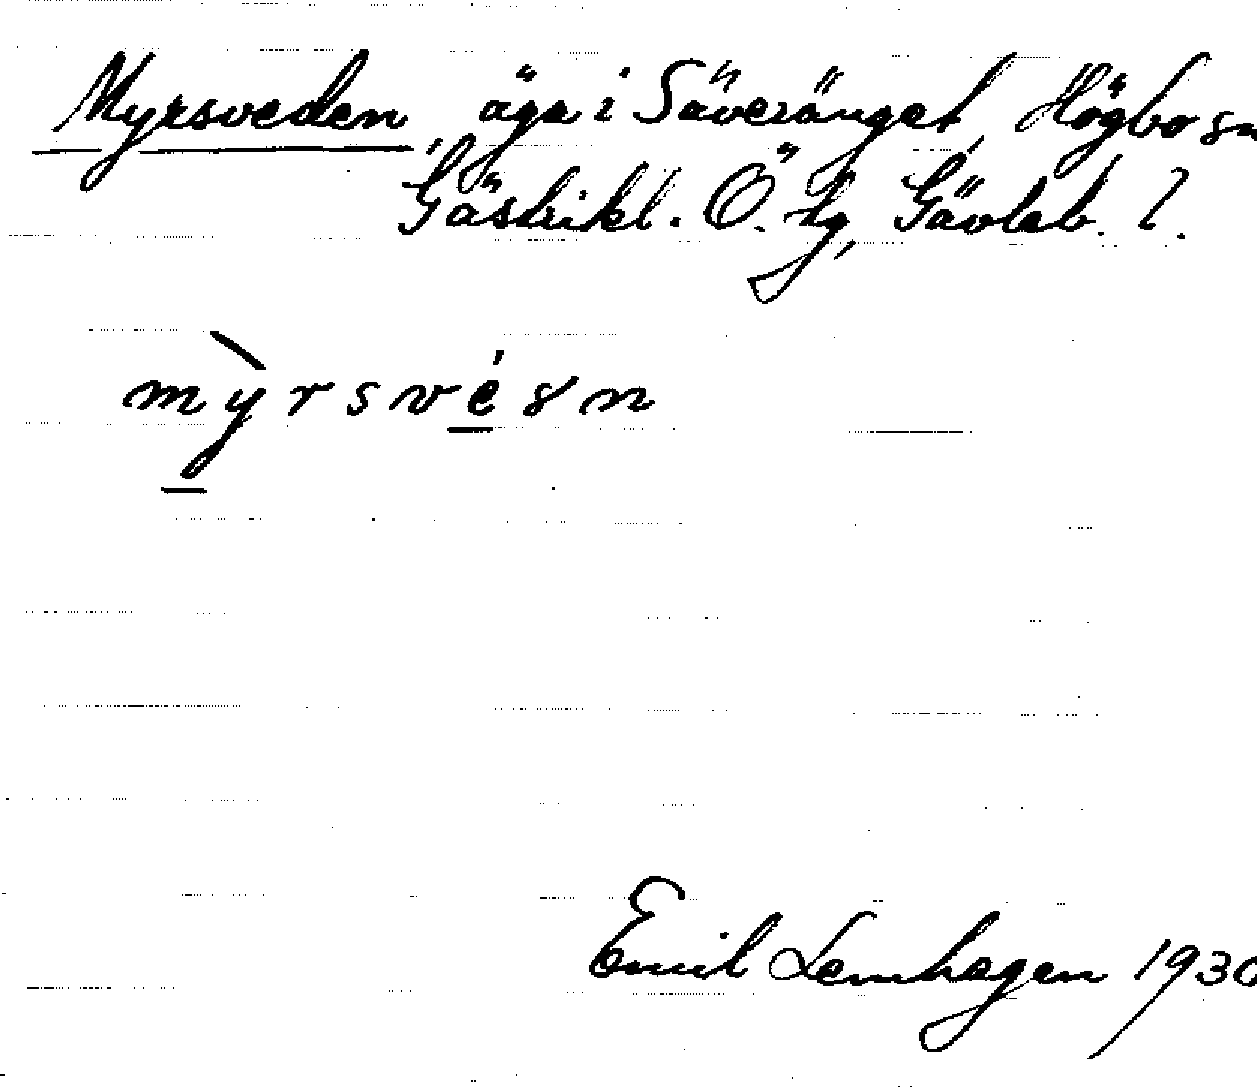 Myrsveden, äga i Säveränget, Högbo sn
Gästrikl. Ö. tg, Gävleb. l.
mỳrsvésn
Emil Lemhagen 1930